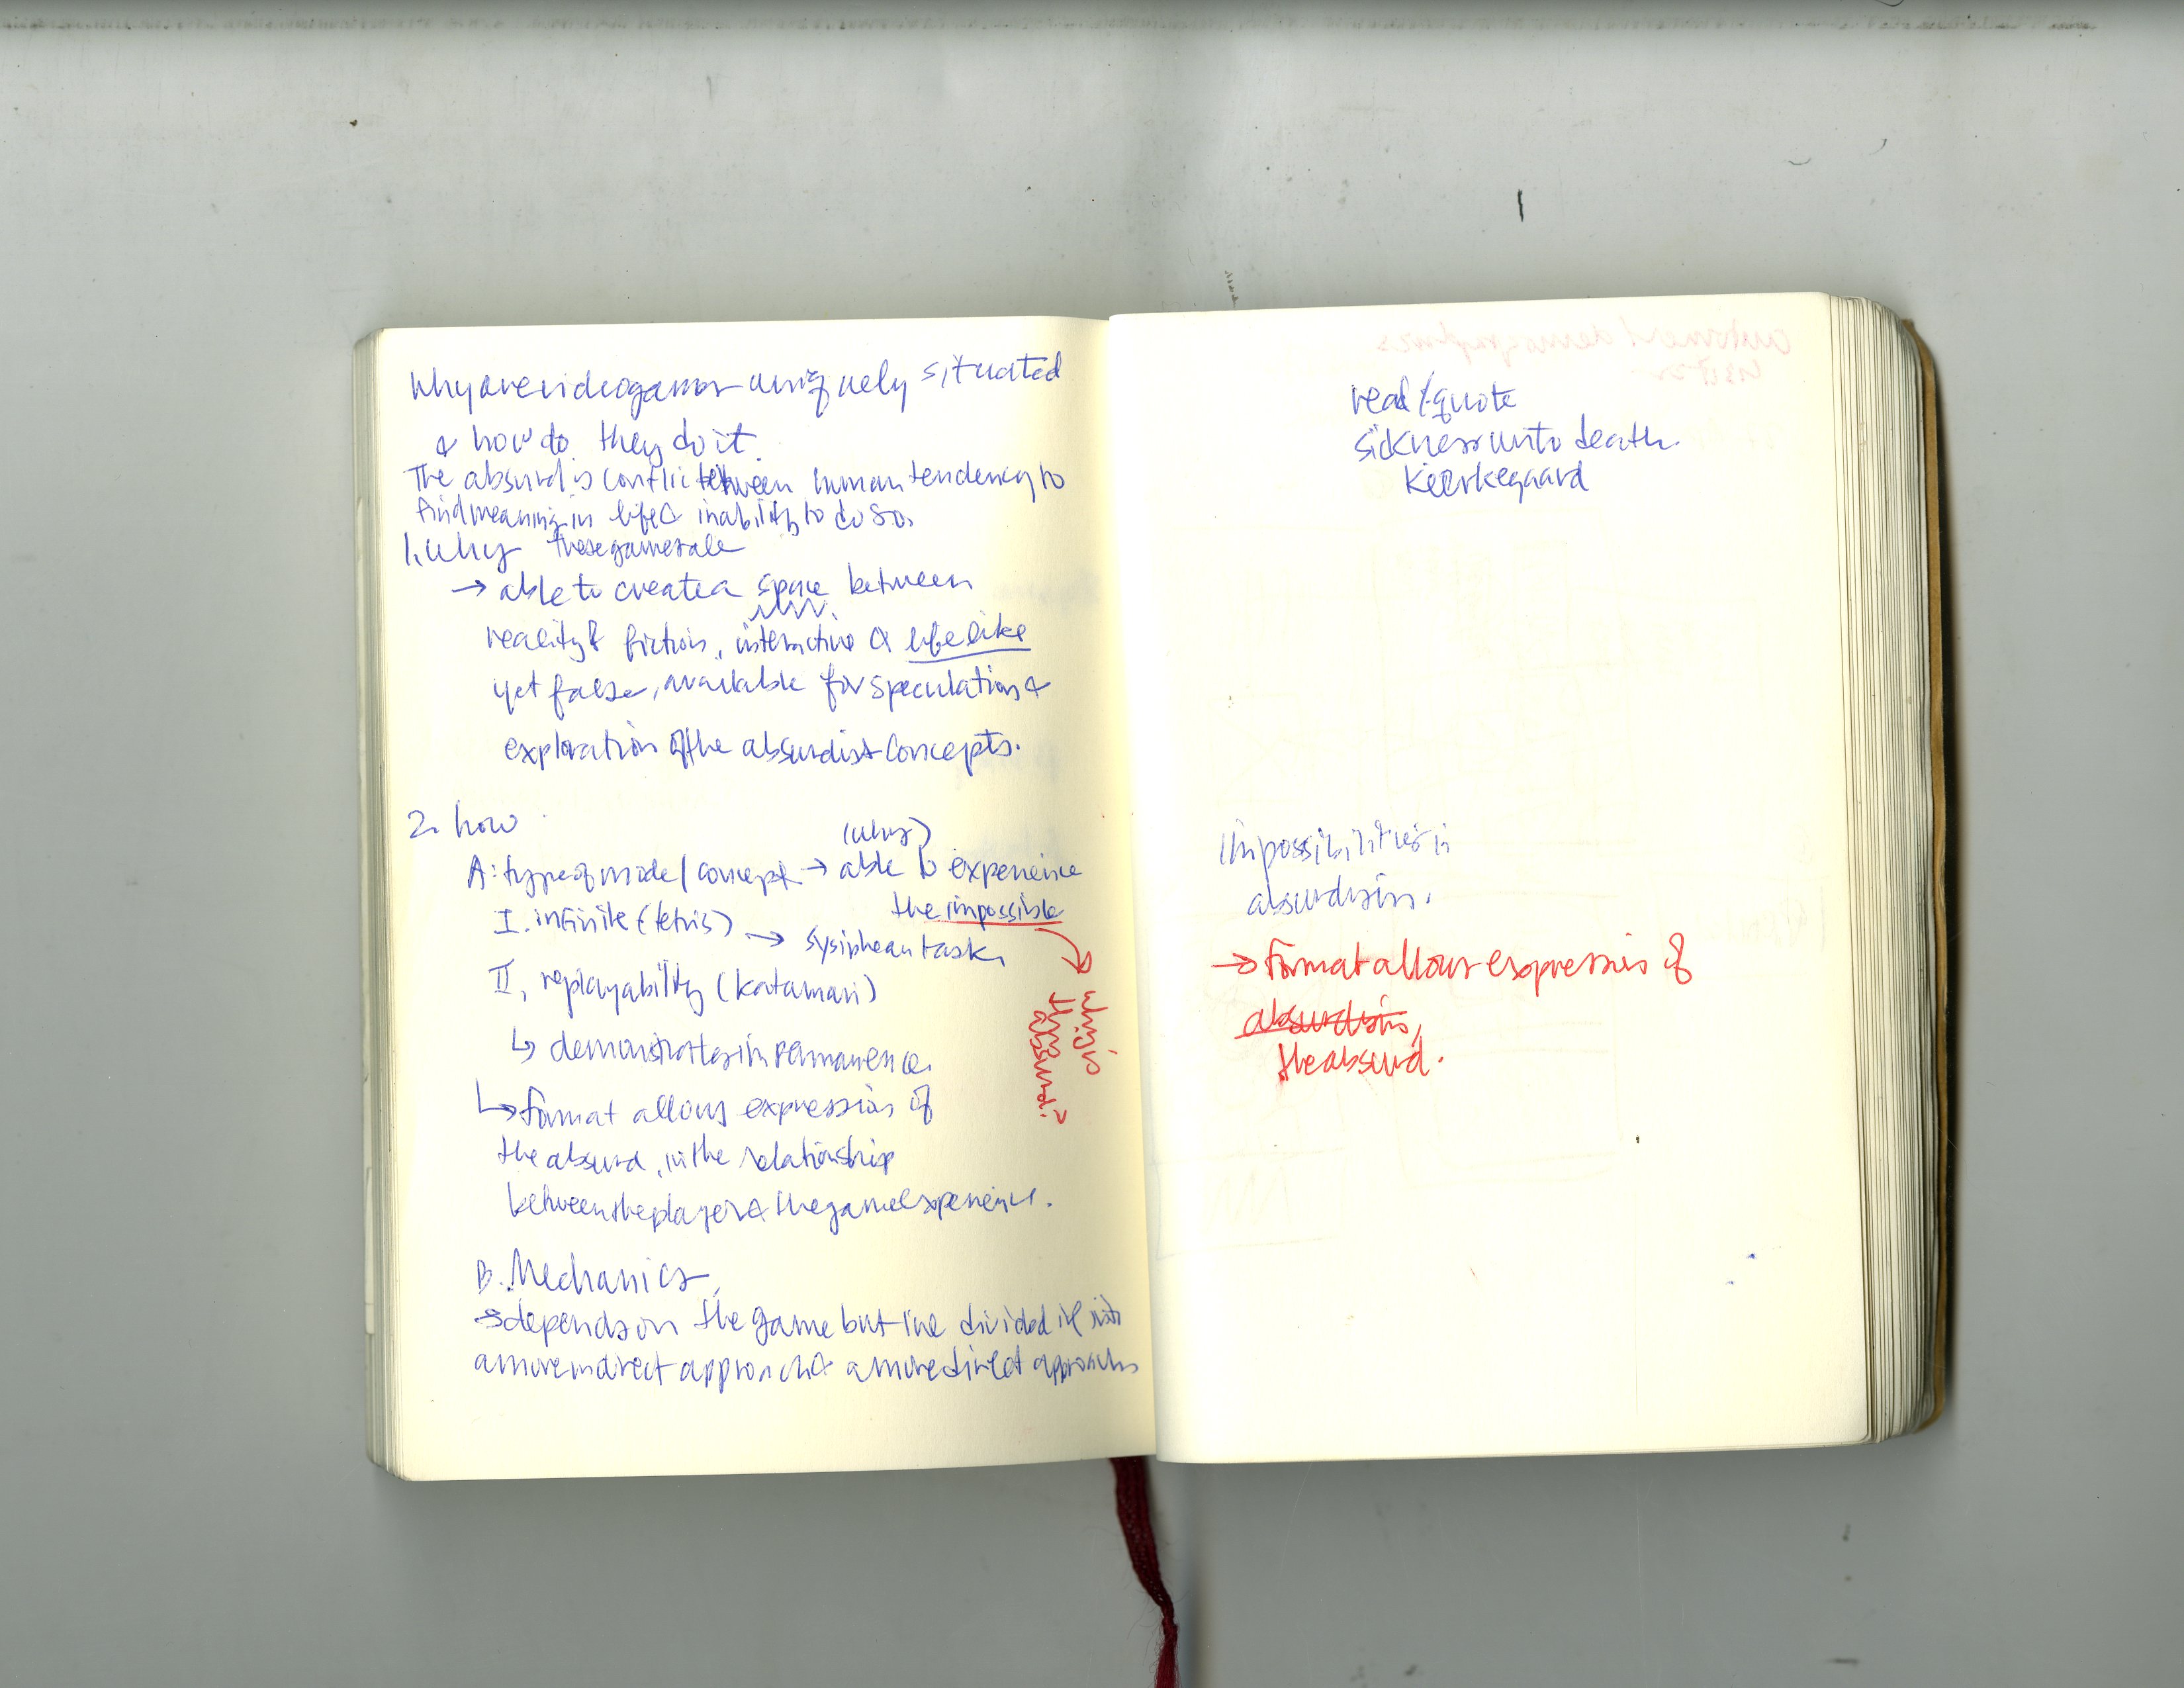 Why are videogames uniquely situated
& how do they do it.
The absurd is conflict between human tendency to
find meaning in life & inability to do so.
1. Why these games are
→ able to create a space between
reality & fiction, interactive & lifelike
yet false, available for speculation &
exploration of the absurdist concepts.
2. how
(why)
A: type of mode/concept → able to experience
the impossible
I. infinite (tetris) → sysiphean task
II. replayability (katamari)
↳ demonstrates impermanence.
↳ format allows expression of
the absurd, in the relationship
between the player & the game experience.
B. Mechanics,
→ depends on the game but I've divided it into
a more indirect approach & a more direct approach
which is
the absurd
read/quote
sickness unto death.
Kierkegaard
Impossibilities in
absurdism.
→ format allows expression of
absurdism,
the absurd.